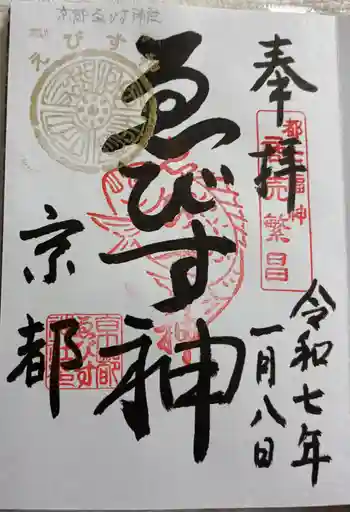 京都ゑびす神社
奉拝
都七福神
商売繁昌
令和七年
一月八日
ゑびす神
京都
えびす
京都
ゑびす